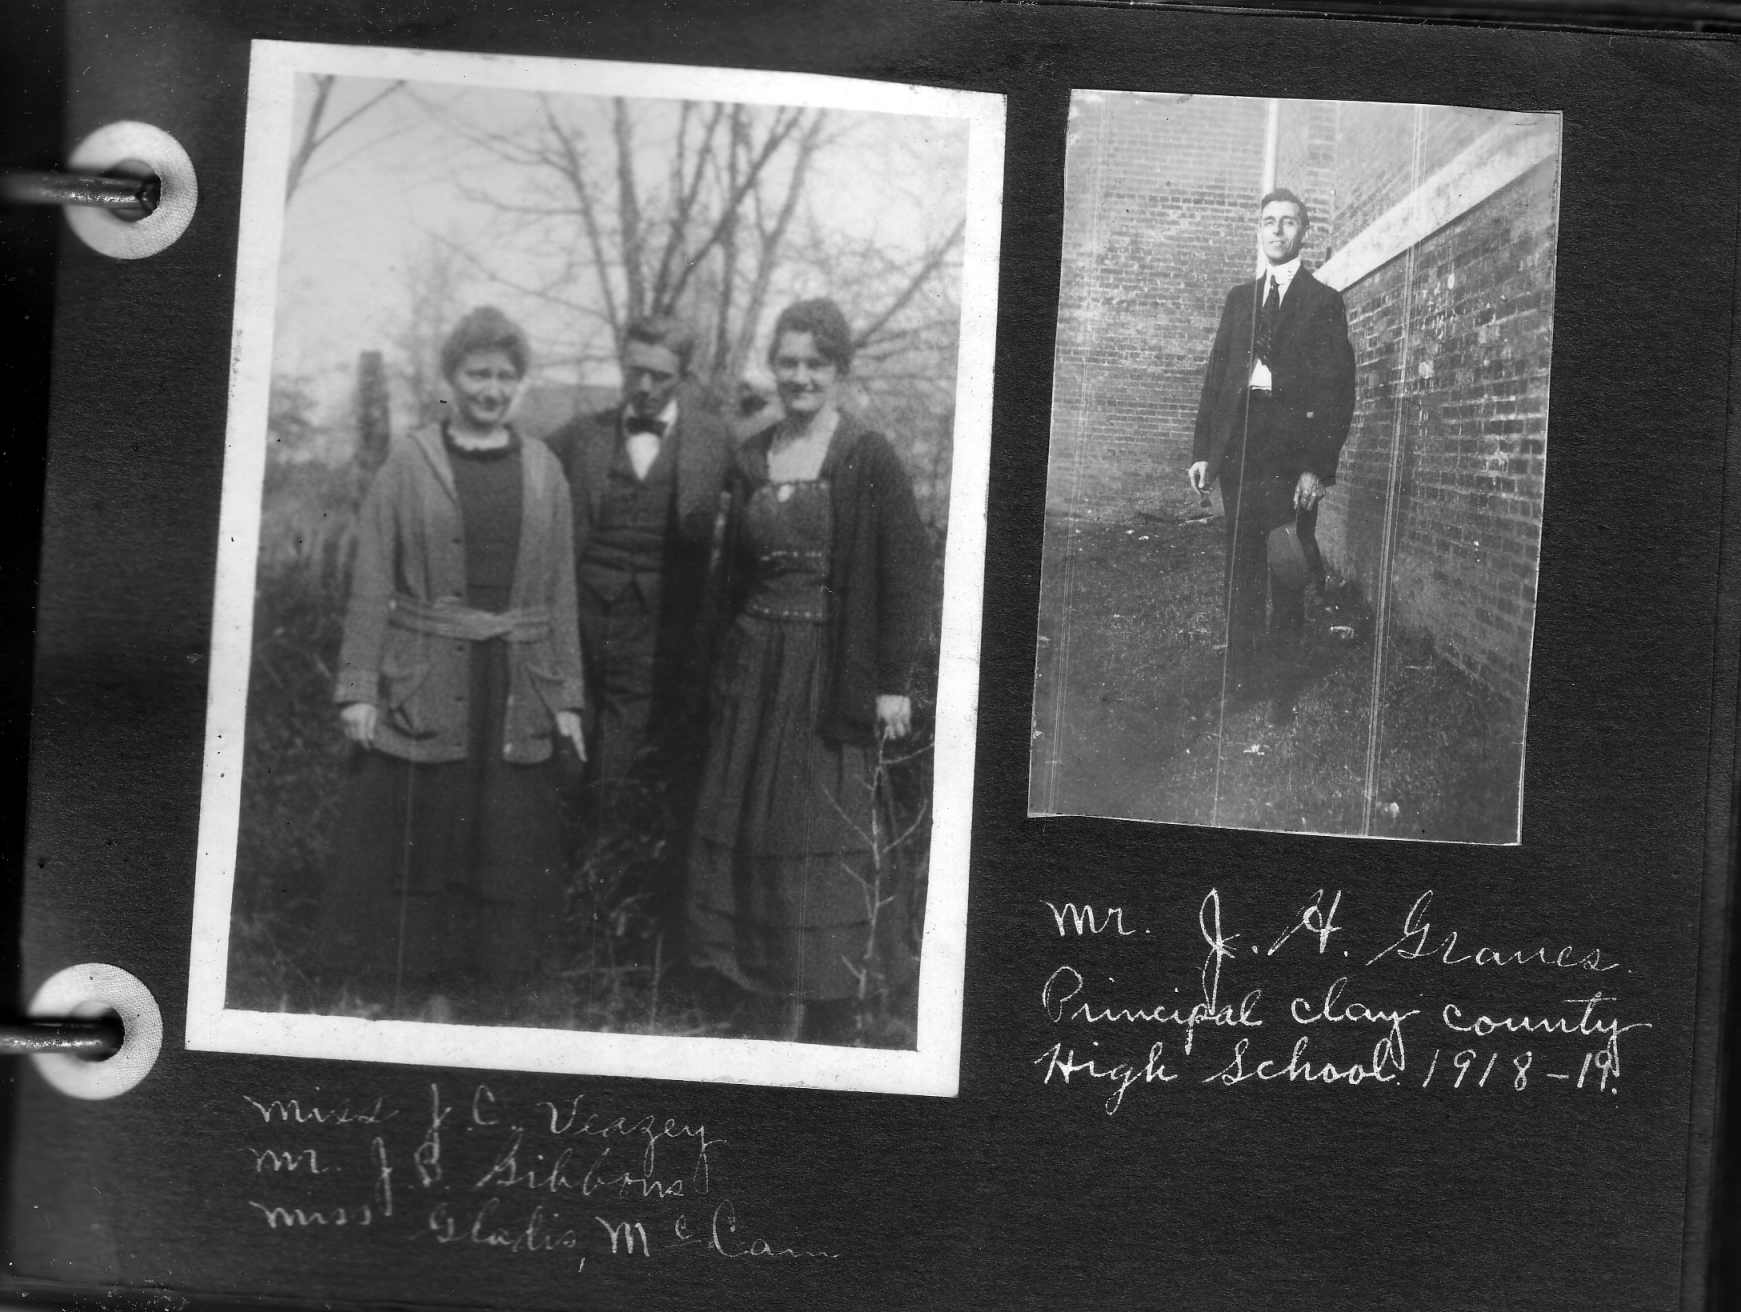 Miss J. C. Veazey
Mr. J. B. Gibbons
Miss Gladis, McCain
Mr. J. H. Graves.
Principal Clay County
High School. 1918-19.